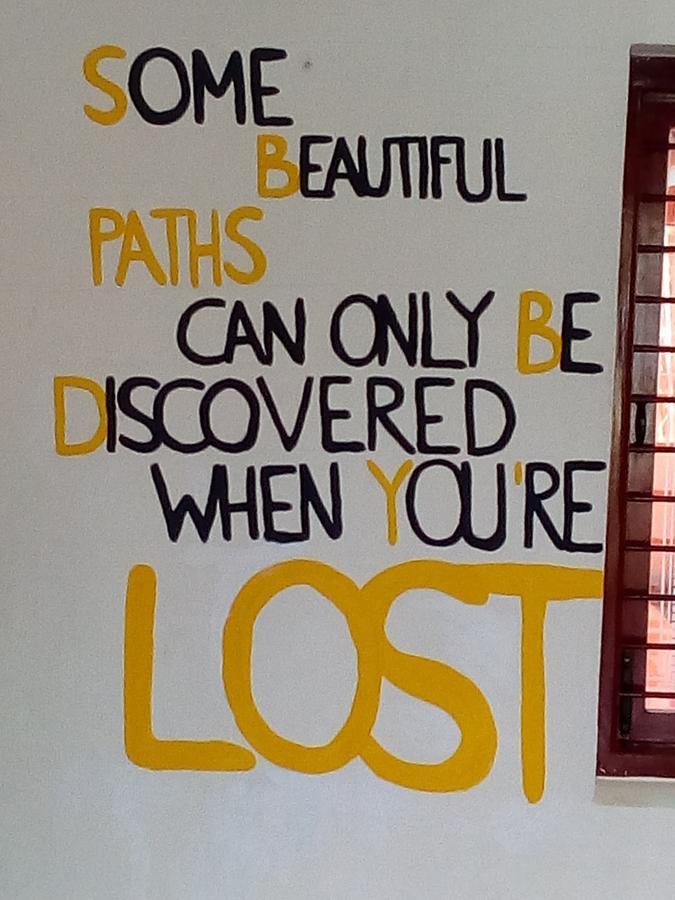 SOME
BEAUTIFUL
PATHS
CAN ONLY BE
DISCOVERED
WHEN YOU'RE
LOST